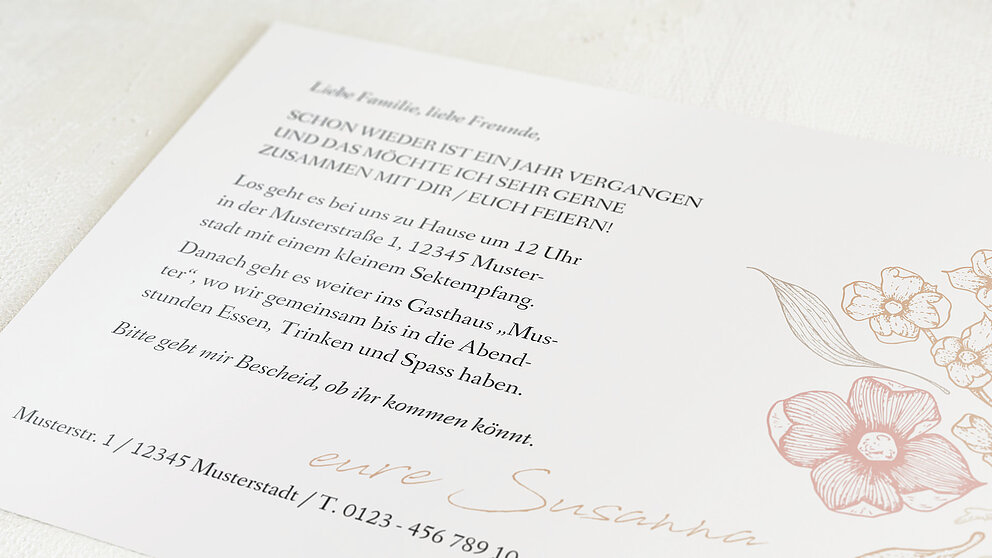 Liebe Familie, liebe Freunde,
SCHON WIEDER IST EIN JAHR VERGANGEN
UND DAS MÖCHTE ICH SEHR GERNE
ZUSAMMEN MIT DIR / EUCH FEIERN!
Los geht es bei uns zu Hause um 12 Uhr
in der Musterstraße 1, 12345 Muster-
stadt mit einem kleinem Sektempfang.
Danach geht es weiter ins Gasthaus „Mus-
ter“, wo wir gemeinsam bis in die Abend-
stunden Essen, Trinken und Spass haben.
Bitte gebt mir Bescheid, ob ihr kommen könnt.
eure Susanna
Musterstr. 1 / 12345 Musterstadt / T. 0123 - 456 789 10